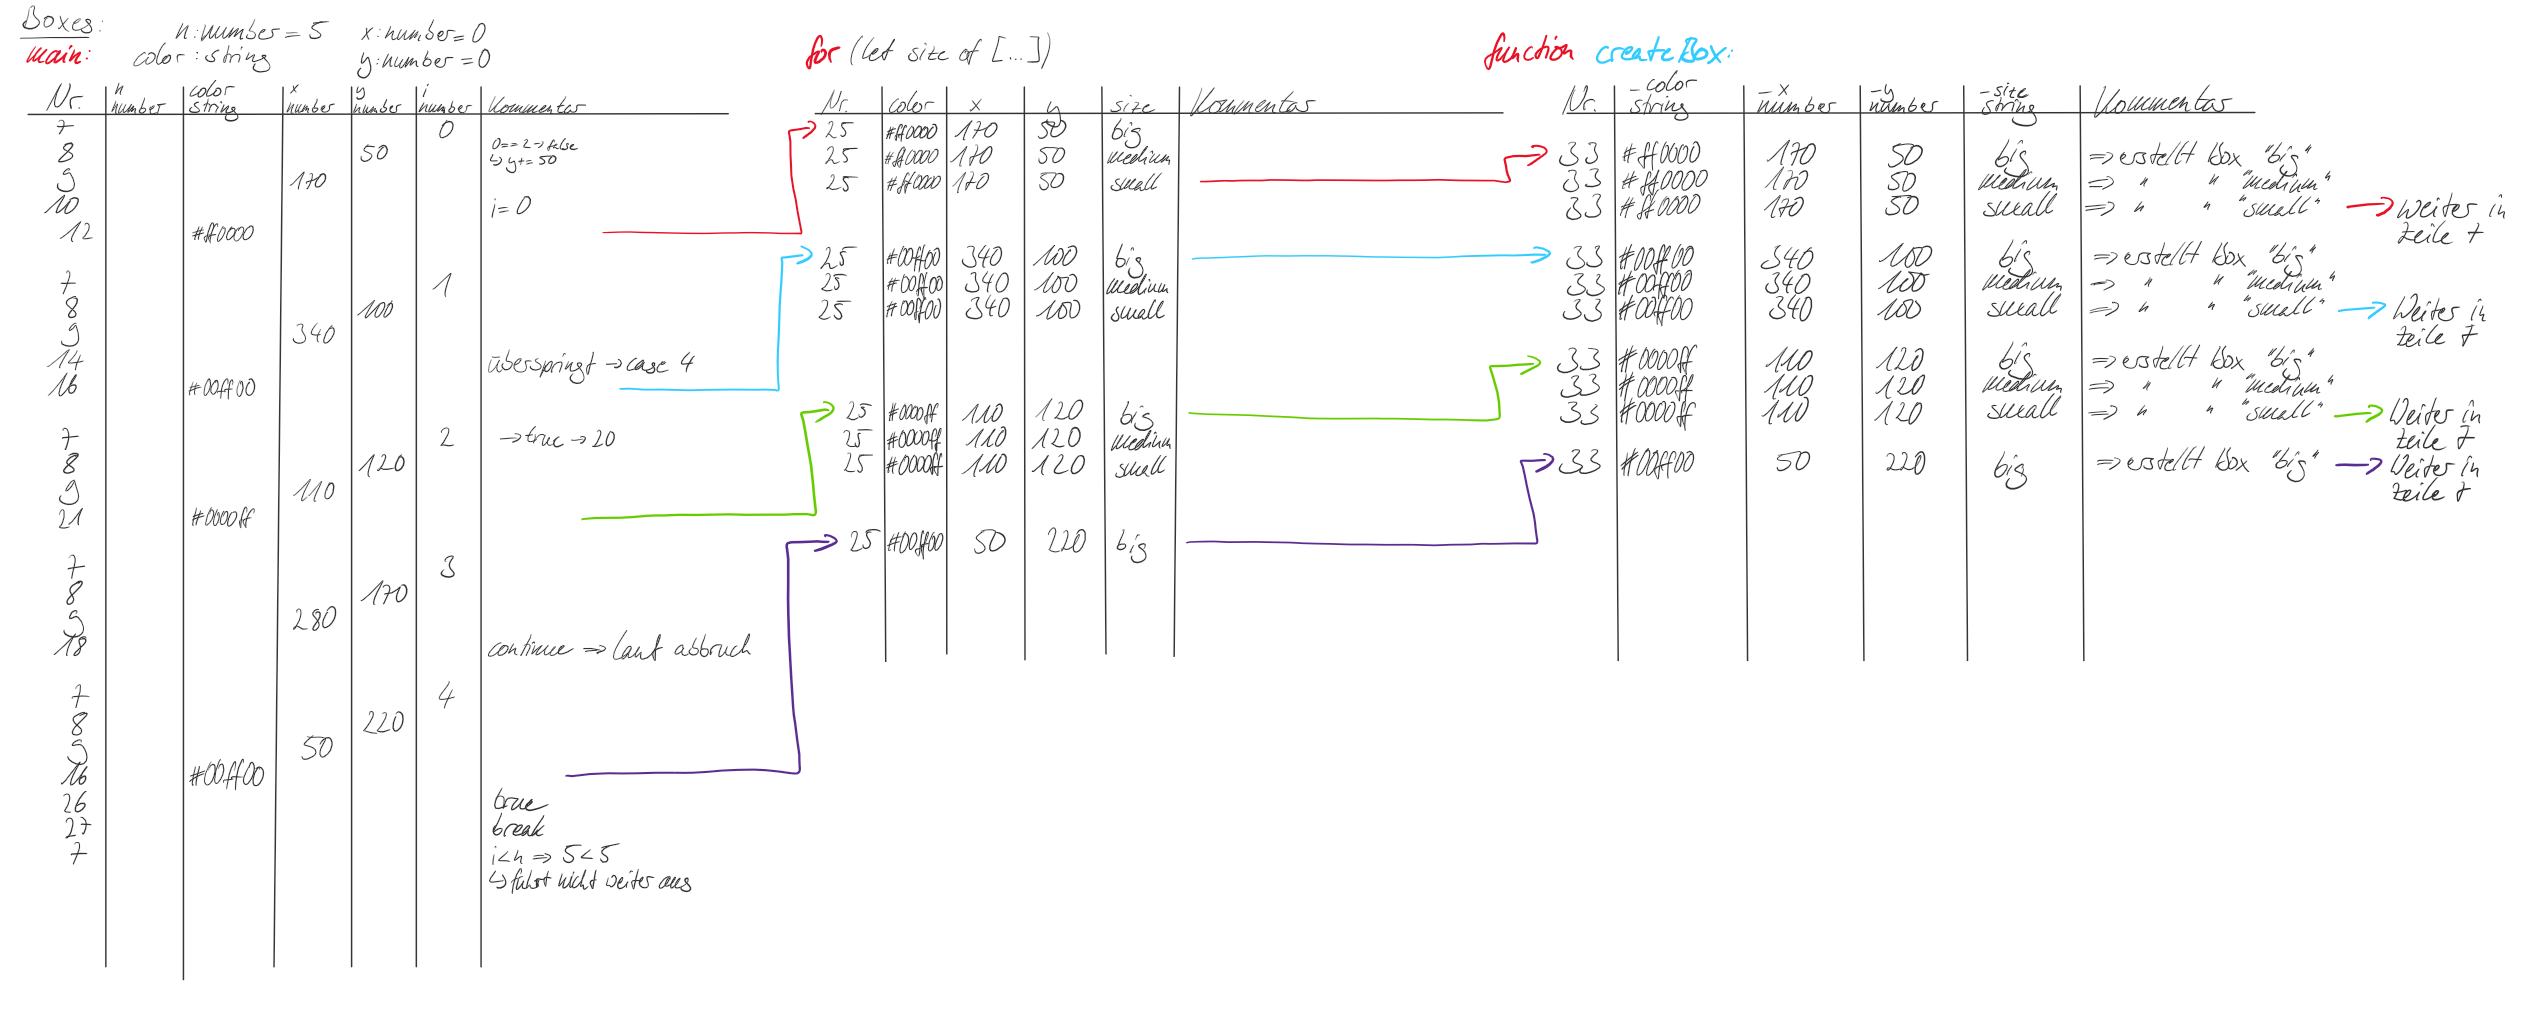 Boxes:
main:
n:number = 5
x:number = 0
color:string
y:number = 0
Nr.
n number
color string
x number
y number
i number
Kommentar
7 0
8 50 0==2→false
↳ y+= 50
9 170
10 i=0
12 #ff0000
7 1
8 100
9 340
14 überspringt → case 4
16 #00ff00
7 2 → true → 20
8 120
9 110
21 #0000ff
7 3
8 170
9 280
18 continue => lauf abbruch
7 4
8 220
9 50
16 #00ff00
26 true
27 break
7 i<n => 5<5
↳ führt nicht weiter aus
for (let size of [...])
Nr. color x y size Kommentar
25 #ff0000 170 50 big
25 #ff0000 170 50 medium
25 #ff0000 170 50 small
25 #00ff00 340 100 big
25 #00ff00 340 100 medium
25 #00ff00 340 100 small
25 #0000ff 110 120 big
25 #0000ff 110 120 medium
25 #0000ff 110 120 small
25 #00ff00 50 220 big
function createBox:
Nr.
_color string
_x number
_y number
_size string
Kommentar
33 #ff0000 170 50 big => erstellt Box "big"
33 #ff0000 170 50 medium => " " "medium"
33 #ff0000 170 50 small => " " "small" → Weiter in
Zeile 7
33 #00ff00 340 100 big => erstellt Box "big"
33 #00ff00 340 100 medium → " " "medium"
33 #00ff00 340 100 small => " " "small" → Weiter in
Zeile 7
33 #0000ff 110 120 big => erstellt Box "big"
33 #0000ff 110 120 medium => " " "medium"
33 #0000ff 110 120 small => " " "small" → Weiter in
Zeile 7
33 #00ff00 50 220 big => erstellt Box "big" → Weiter in
Zeile 7